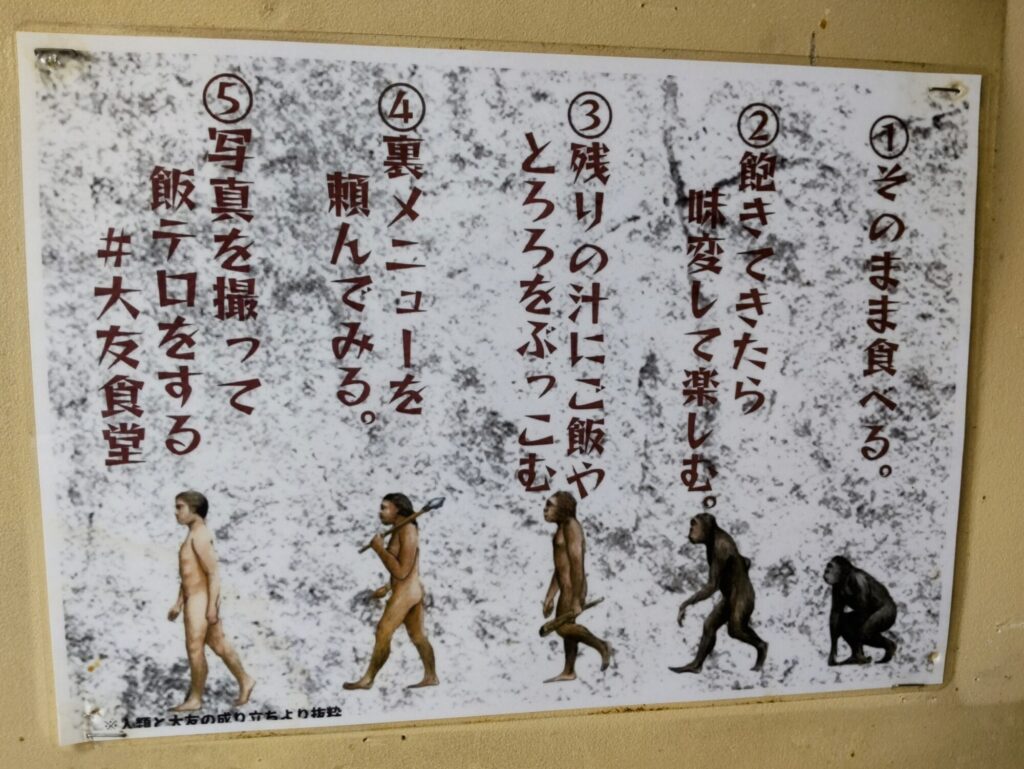 ①そのまま食べる。
②飽きてきたら
味変して楽しむ。
③残りの汁にご飯や
とろろをぶっこむ
④裏メニューを
頼んでみる。
⑤写真を撮って
飯テロをする
#大友食堂
※人類と大友の成り立ちより抜粋